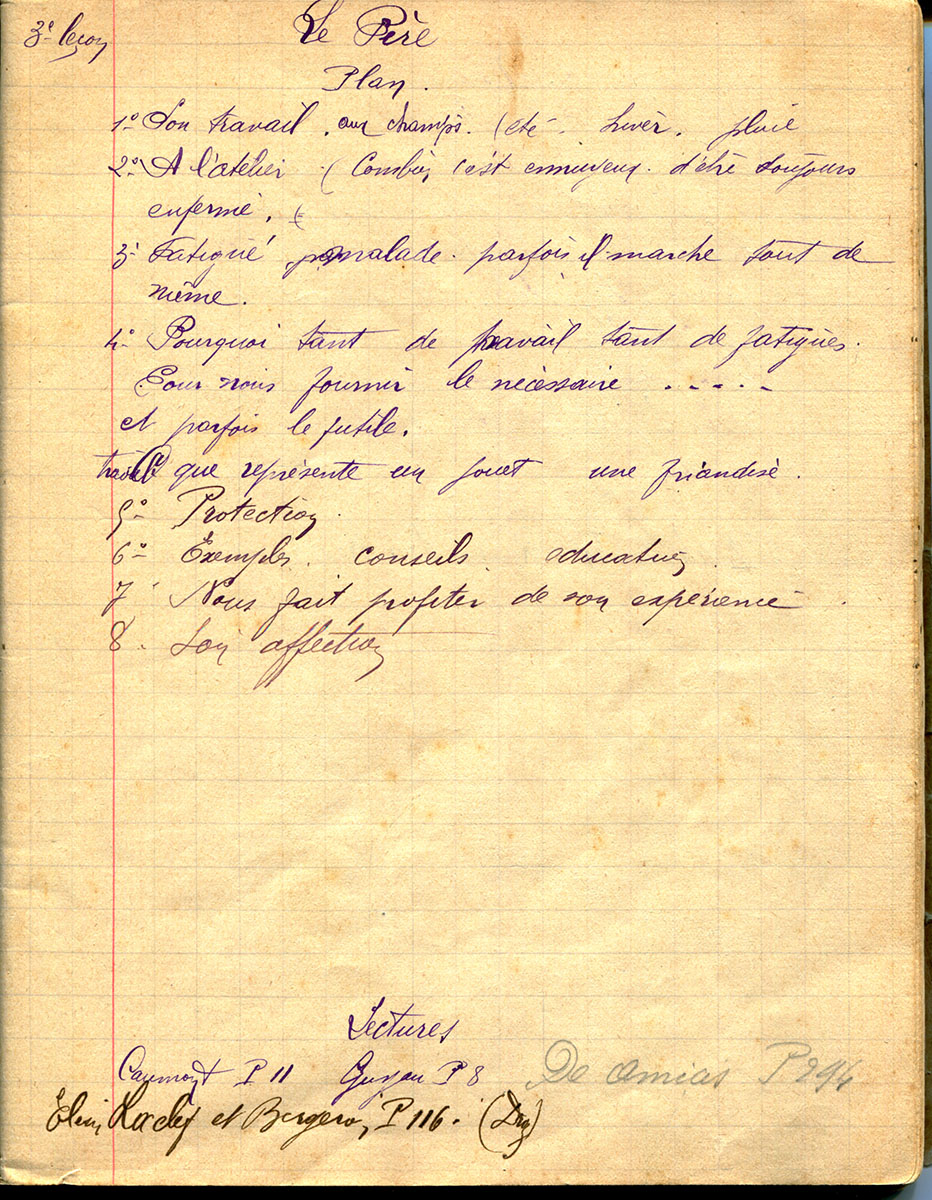 3e leçon
Le Père
Plan.
1° Son travail. aux champs. (été. hiver. pluie
2° A l'atelier (Combien c'est ennuyeux. d'être toujours
enfermé. (
3° Fatigué malade. parfois il marche tout de
même.
4° Pourquoi tant de travail tant de fatigues.
Pour nous fournir le nécessaire . . . . .
et parfois le futile.
travail que représente un jouet une friandise.
5° Protection.
6° Exemples. conseils. education.
7 Nous fait profiter de son expérience.
8. Son affection
Lectures
Caumont P 11 Guyau P 8 De Amicis P 294
et Bergeron P 116.